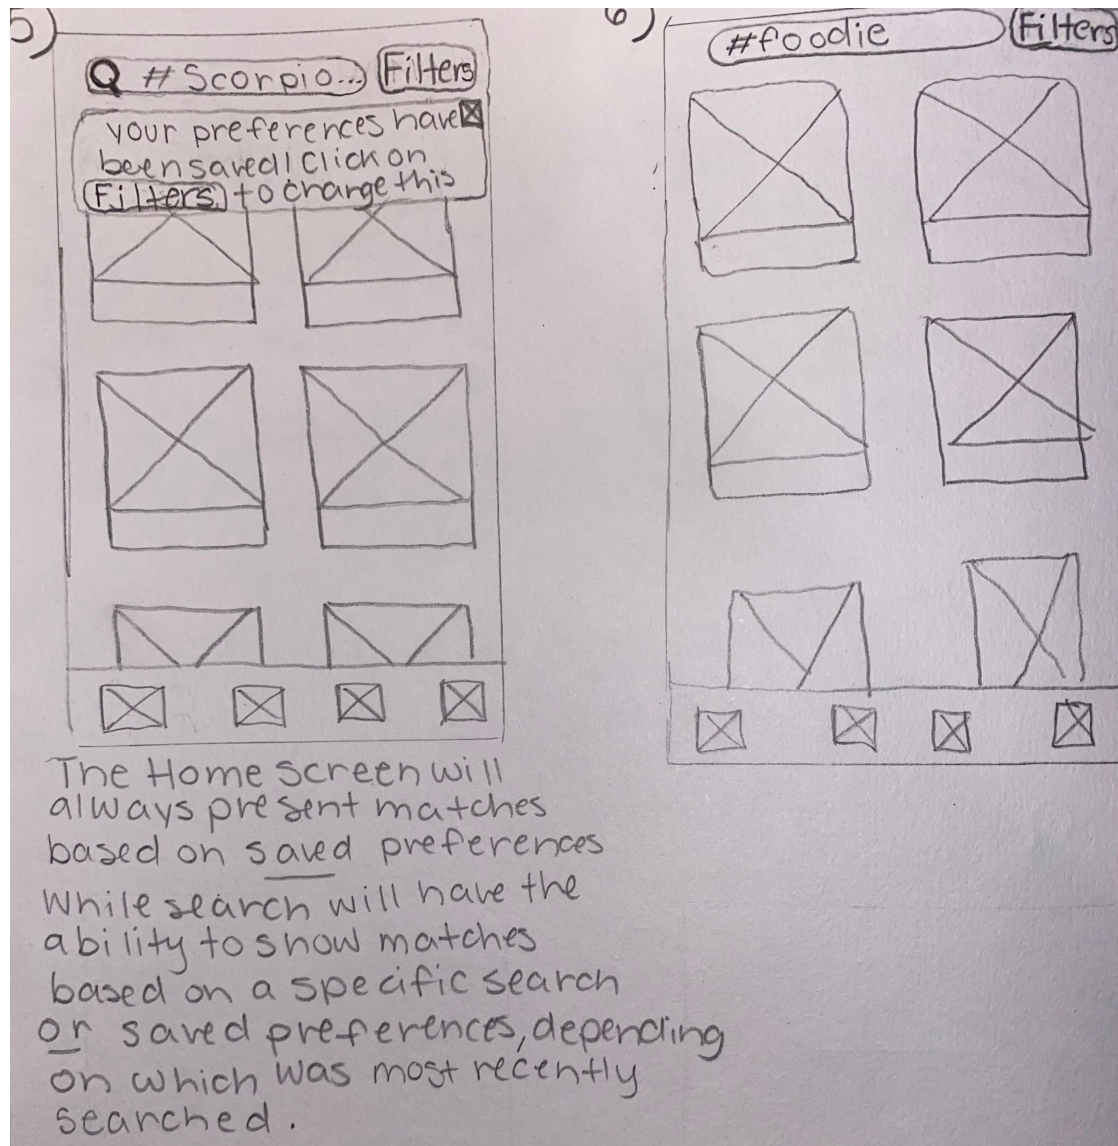 5)
Q #Scorpio... Filters
your preferences have
been saved! Click on
Filters to change this
6)
#foodie Filters
The Home Screen will
always present matches
based on saved preferences
While search will have the
ability to show matches
based on a specific search
or saved preferences, depending
on which was most recently
searched.